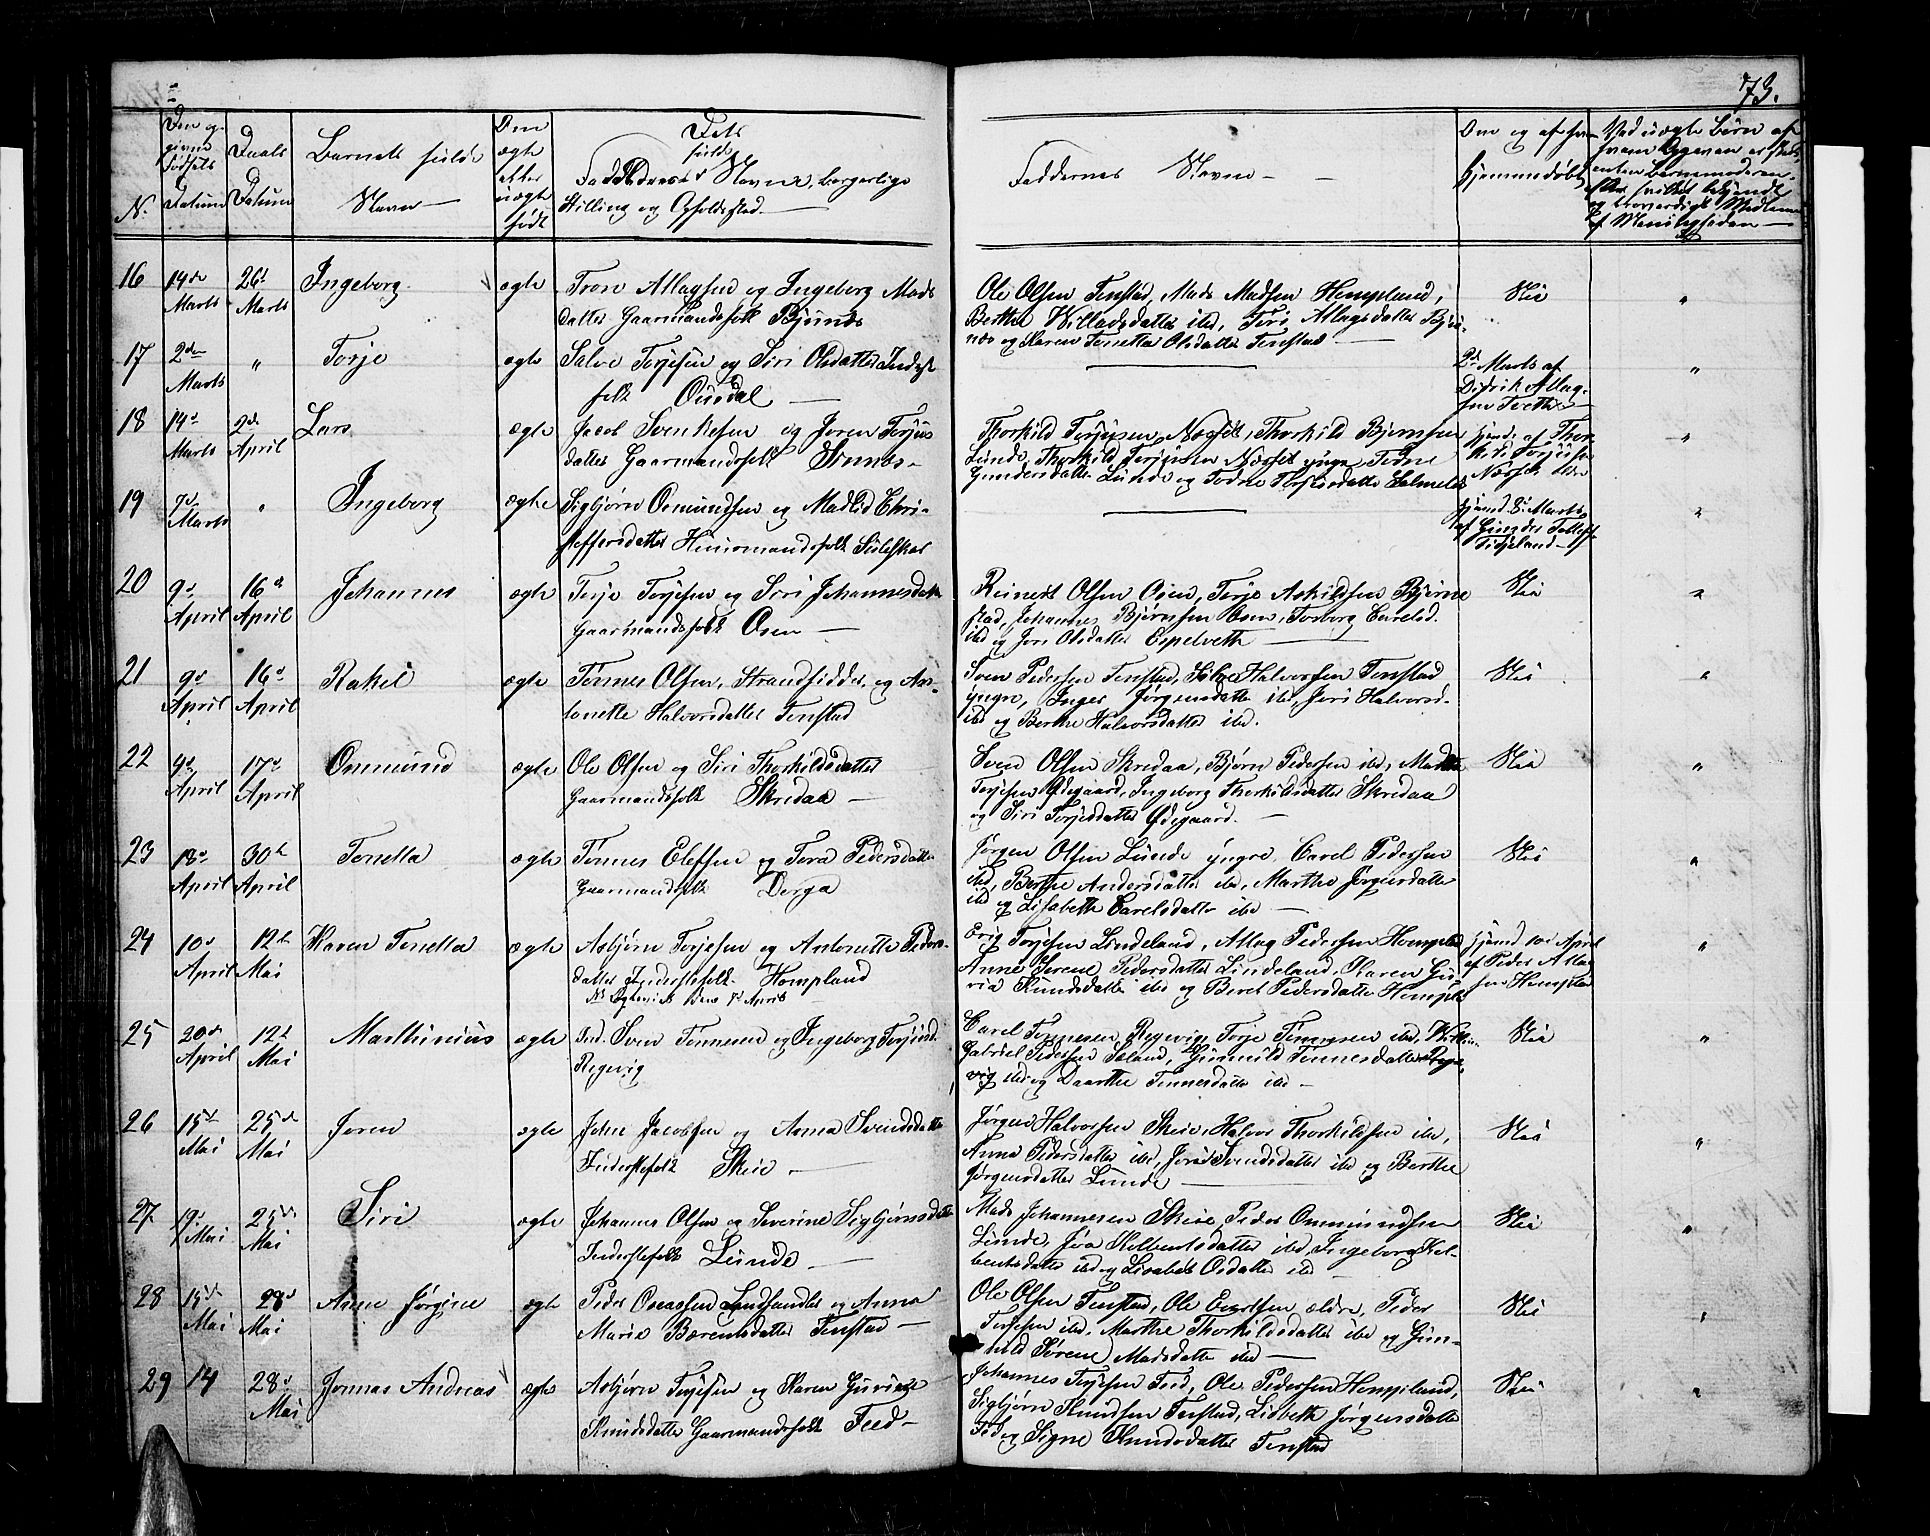 73.
Den og-
givne
Fødsels
Datum
Daabs
Datum
Barnets fulde
Navn
Om
ægte
eller
uægte
født
Dets
fulde
Forældres Navne, borgerlige
Stilling og Opholdssted.
Faddernes Navne
Om og af hvem
hjemmedøbt
Ved uægte Børn af
hvem Opgaven er skeet
enten Barnemoderen
eller hvilket bekjendt
og troværdigt Medlem
af Menigheden
N.
16 14de Marts 26d Marts Ingeborg ægte Tron Atlagsen og Ingeborg Mads
datter Gaarmandsfolk Bjunes
Ole Olsen Tenstad, Mads Madsen Hompland,
Berthe Willadsdatter ibd, Siri Atlagsdatter Bju-
næs og Karen Tonetta Olsdatter Tenstad
Nei "
17 2den Marts " Torje ægte Salve Torjesen og Siri Olsdatter Inderst
folk Ousdal
2d Marts af
Didrik Atlag-
sen Tveth
"
18 14d Marts 2d April Lars ægte Jacob Svenkesen og Joren Torjus
datter Gaarmandsfolk Sinnes
Thorkild Torjusen Næset, Thorkild Bjørnsen
Lunde, Thorkild Torjusen Næset yngre, Todne
Gundersdatter Lunde og Todne Torstensdatter
hjemd. af Thor
kild Torjusen
"
19 Marts " Ingeborg ægte Sigbjørn Osmundsen og Madlid Chri-
stoffersdatter Huusmandsfolk Suleskar
hjemd. Marts
af Gunder
"
20 9d April 16d April Johannes ægte Torje Torjesen og Siri Johannesdatter
Gaarmandsfolk Osen
Reinert Olsen Osen, Torje Askildsen Bjørne
stad, Johannes Bjørnsen Osen, Torborg Carelsd.
ibd og Jori Olsdatter Espetveth
Nei "
21 9d April 16d April Rakel ægte Tønnes Olsen, Strandsidder, og An-
tonette Halvorsdatter Tenstad
Sven Pedersen Tenstad, Halvorsen Tenstad
yngre, Inger Jørgensdatter ibd, Jori Halvorsd.
ibd og Berthe Halvorsdatter ibd.
Nei "
22 9d April 17d April Ommund ægte Ole Olsen og Siri Thorkildsdatter
Gaarmandsfolk Skredaa
Sven Olsen Skredaa, Bjørn Pedersen ibd,
Torjesen Ødegaard, Ingeborg Thorkildsdatter Skredaa
og Siri Torjesdatter Ødegaard.
Nei "
23 18d April 30te April Tonetta ægte Tønnes Eleffsen og Tora Pedersdatter
Gaarmandsfolk Derga
Jørgen Olsen Lunde yngre, Carel Pedersen
ibd, Berthe Andersdatter ibd, Marthe Jørgensdatter
ibd og Lisabeth Carelsdatter ibd
Nei "
24 10d April 12te Mai Karen Tonetta ægte Asbjørn Torjesen og Antonette Peders-
datter Inderstefolk Hompland
Erig Torjesen Lindeland, Atlag Pedersen Hompland
Anne Serene Pedersdatter Lindeland, Karen Gu-
ria Knudsdatter ibd og Beret Pedersdatter Hompl.
hjemd 10d April
af Peder Atlag
sen Hompland
"
25 20de April 12te Mai Marthinius ægte Ind. Sven Tønnesen og Ingeborg Torjusd.
Regevig
Carel Tønnesen Regevig, Torje Tønnesen ibd,
Gabriel Pedersen Seland, Gunnild Tønnesdatter Rege-
vig ibd og Daarthe Tønnesdatter ibd
Nei "
26 15d Mai 25de Mai Joren ægte John Jacobsen og Anna Svendsdatter
Inderstefolk Skeie
Jørgen Halvorsen Skeie, Halvor Thorkildsen ibd,
Anna Pedersdatter ibd, Joren Svendsdatter ibd og Berthe
Jørgensdatter Lunde
Nei "
27 19d Mai 25de Mai Siri ægte Johannes Olsen og Severine Sigbjørnsdatter
Inderstefolk Lunde
Mads Johannesen Skeie, Peder Ommundsen
Lunde, Joa Kolbentsdatter ibd, Ingeborg Kol-
bentsdatter ibd og Lisabet Osdatter ibd
Nei "
28 15de Mai 28d Mai Anne Jørgine ægte Peder Oseassen Landhandler og Anna
Marie Bærentsdatter Tenstad
Ole Olsen Tenstad, Ole Evertsen ældre, Peder
Torjesen ibd, Marthe Thorkildsdatter ibd og Gun-
hild Sørene Madsdatter ibd
Nei "
29 14 28d Mai Jonnas Andreas ægte Asbjørn Torjesen og Karen Guriane
Knudsdatter Gaarmandsfolk Feed
Johannes Torjesen Feed, Ole Pedersen Hompland,
Sigbjørn Knudsen Tenstad, Lisbeth Jørgensdatter
Fed og Signe Knudsdatter Tenstad
Nei "